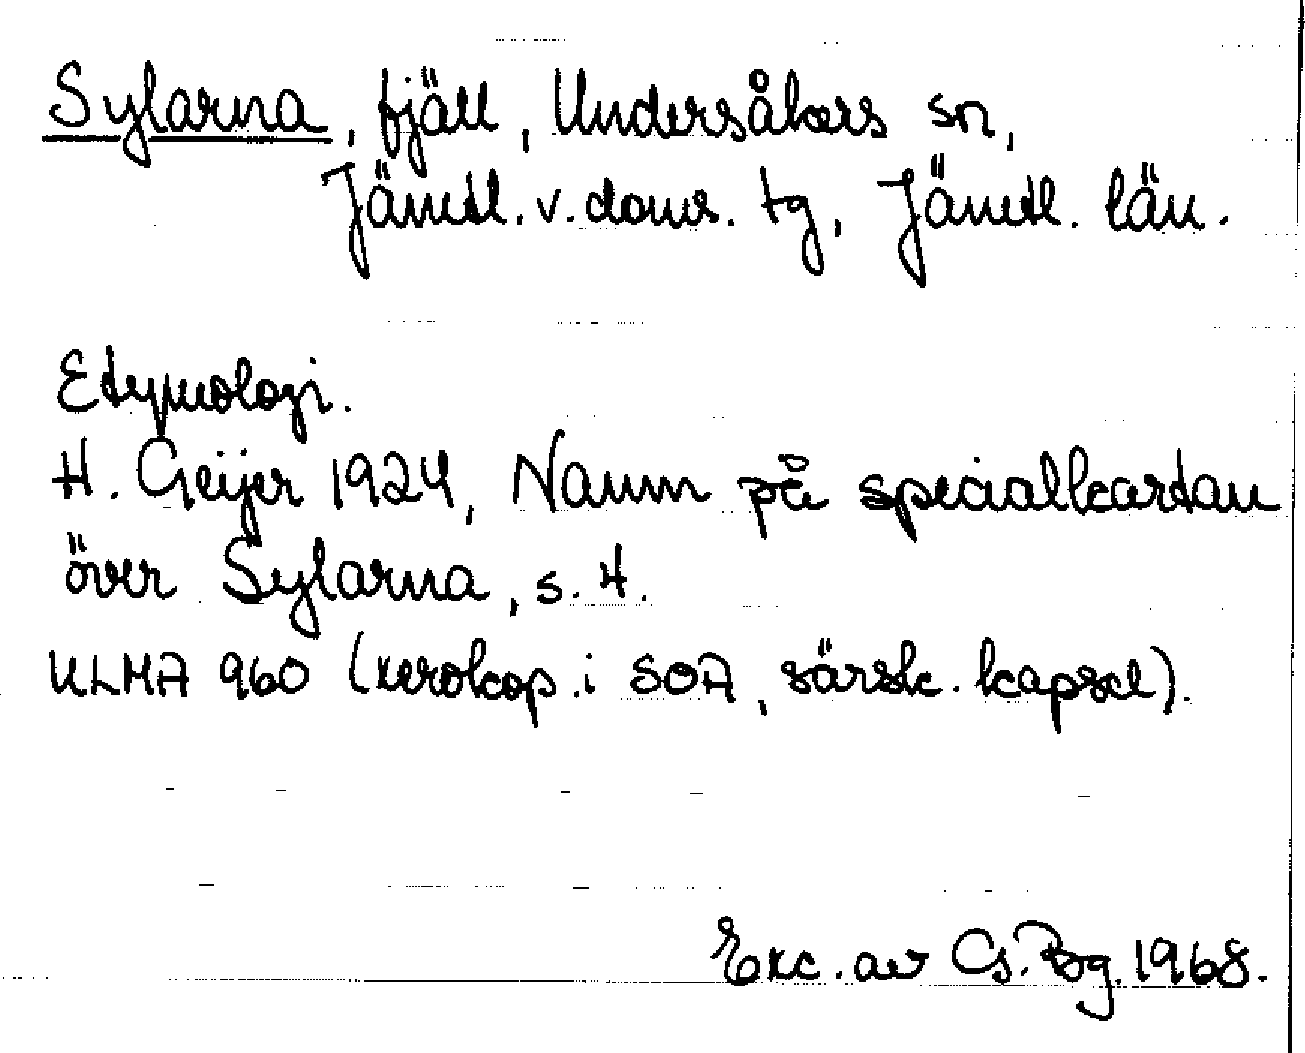 Sylarna, fjäll, Undersåkers sn,
Jämtl. v. doms. tg, Jämtl. län.
Etymologi.
H. Geijer 1924, Namn på specialkartan
över Sylarna, s. 4.
ULMA 960 (xerokop. i SOA, särsk. kapsel).
Exc. av G. Bg. 1968.